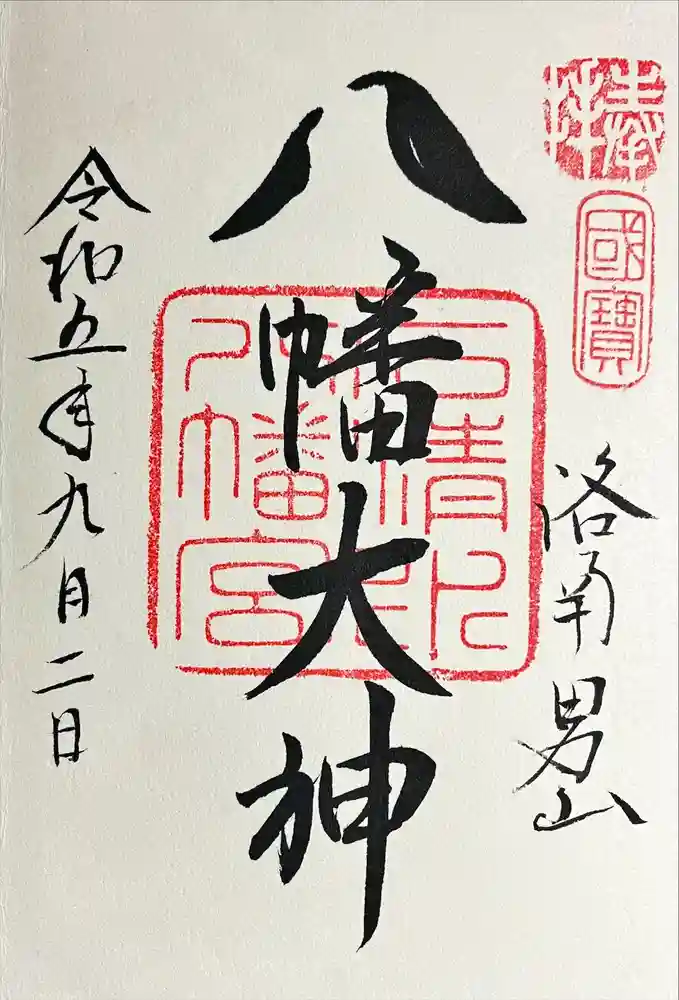 奉拝
國寶
洛南男山
八幡大神
石清水
八幡宮
令和五年九月二日